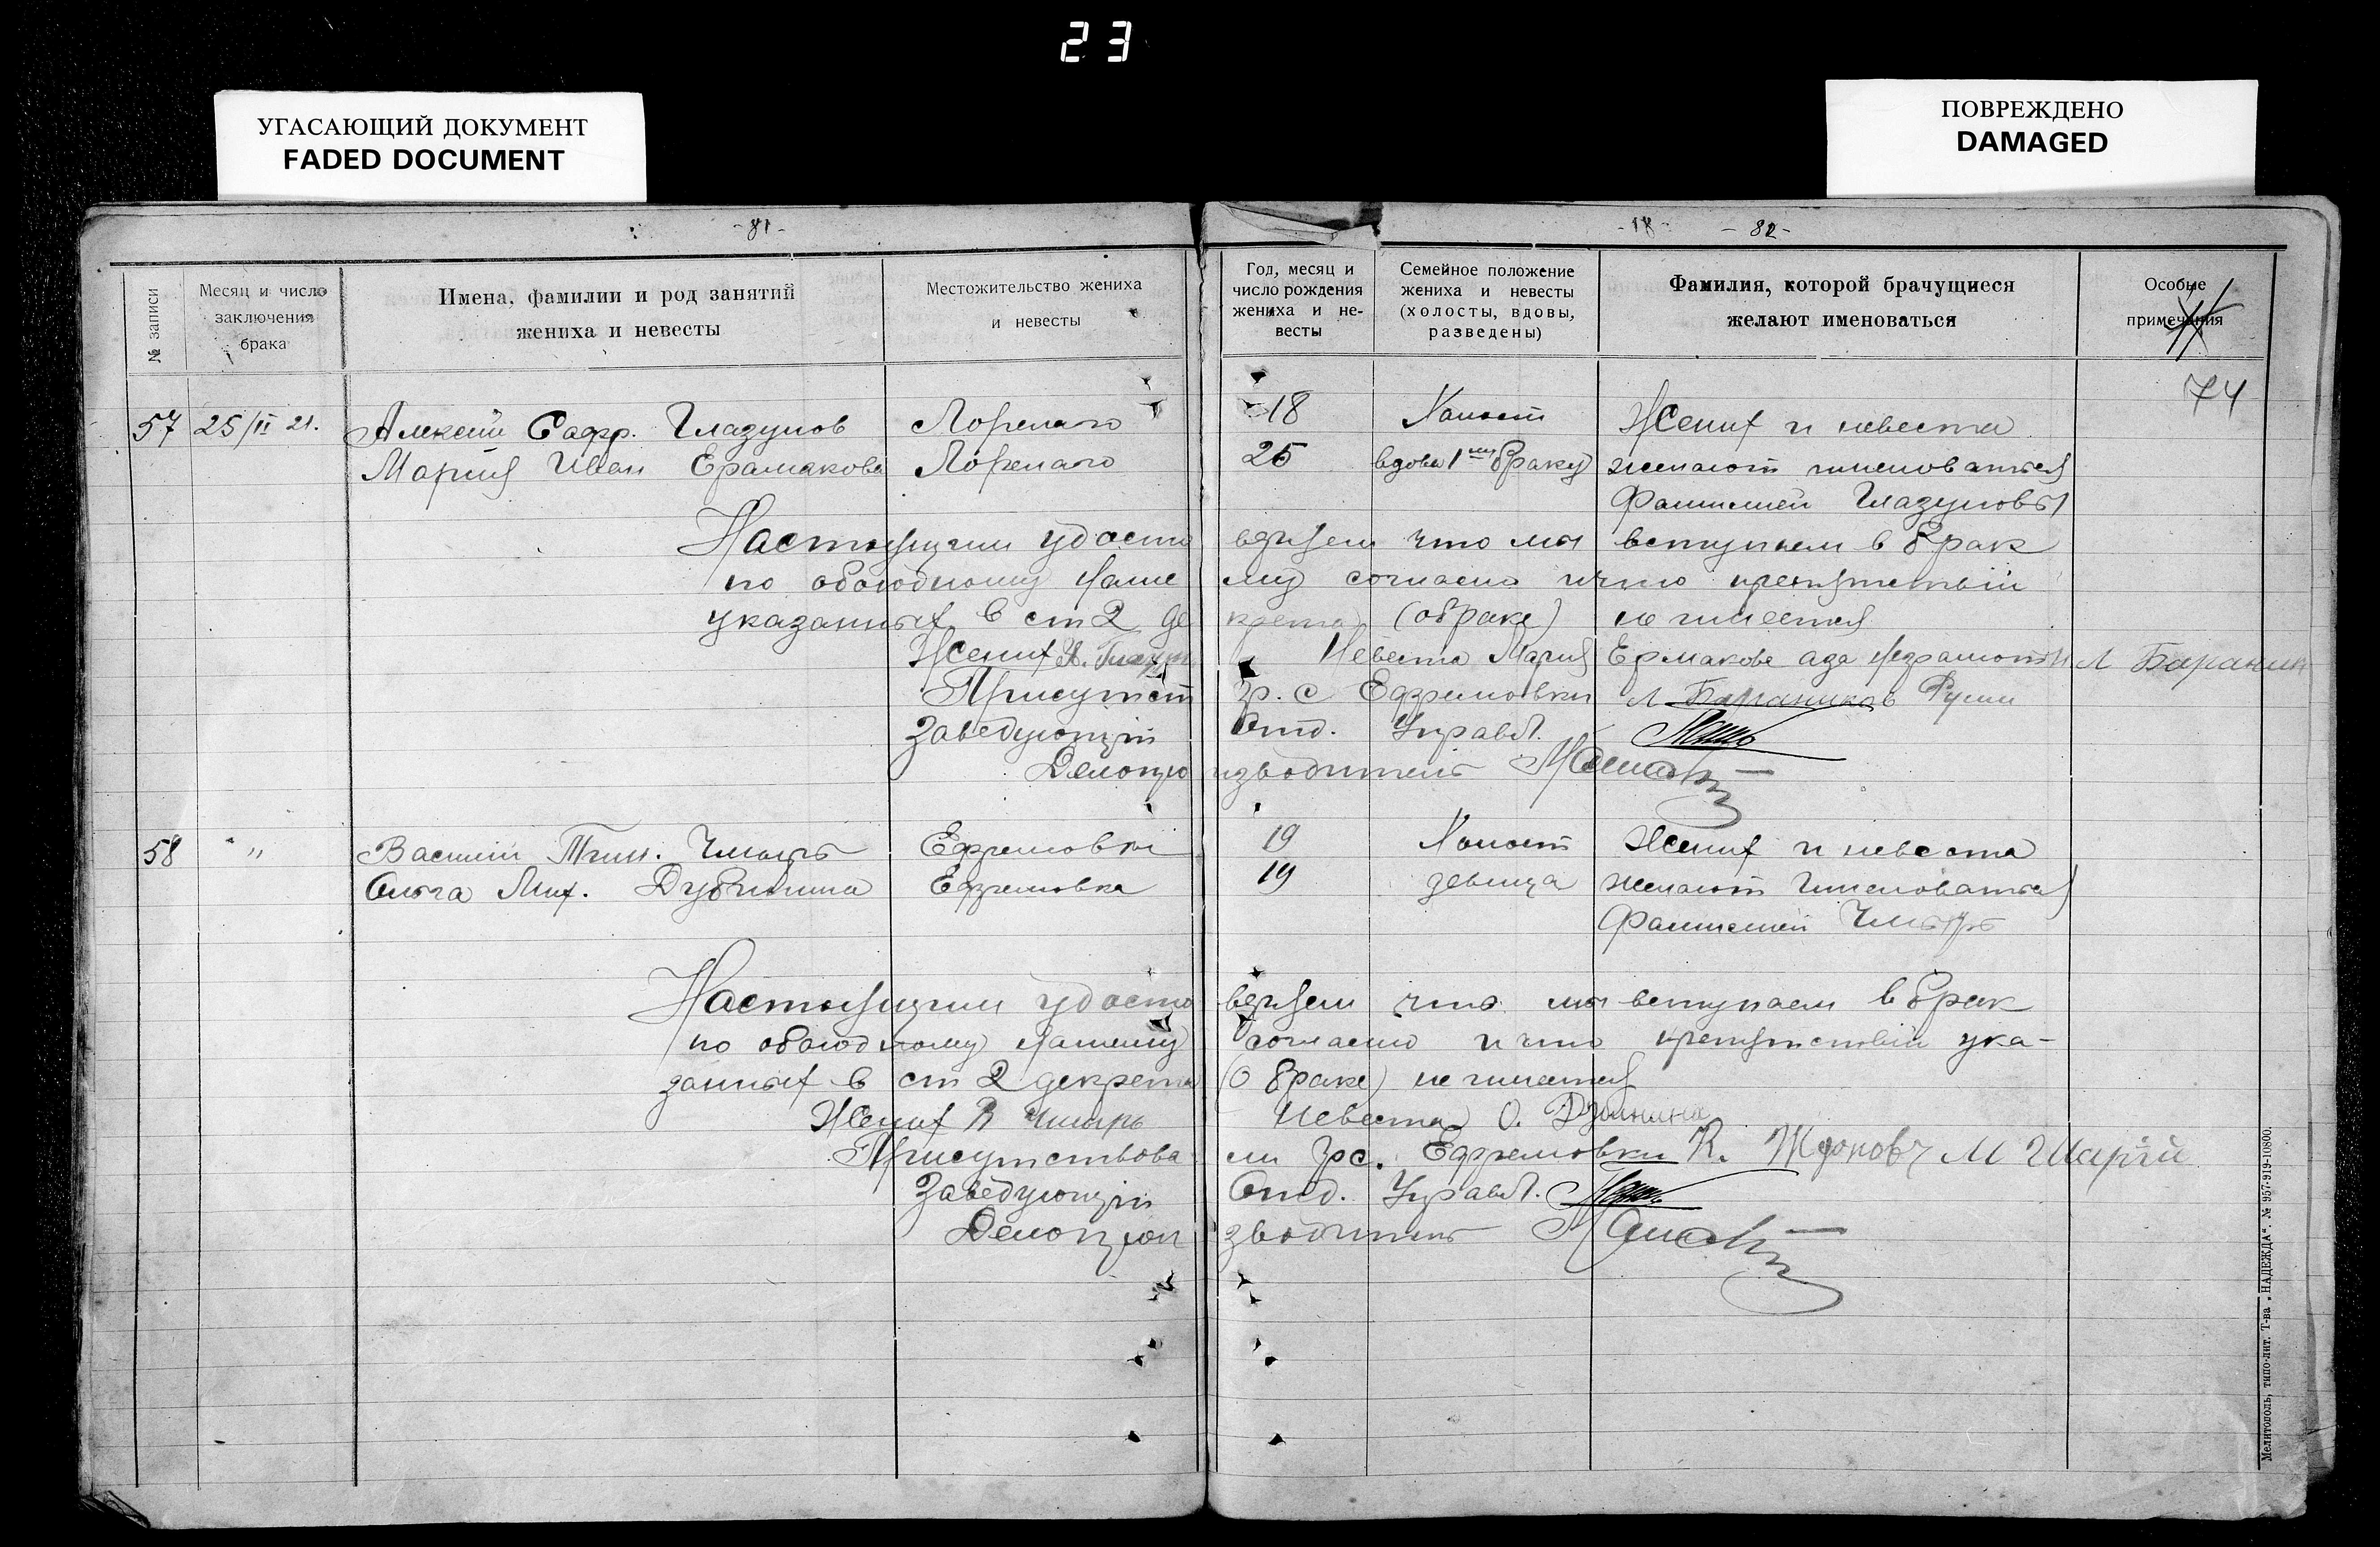 23
УГАСАЮЩИЙ ДОКУМЕНТ
FADED DOCUMENT
ПОВРЕЖДЕНО
DAMAGED
-81-
-18- -82-
№ записи
Месяц и число
заключения
брака
Имена, фамилии и род занятий
жениха и невесты
Местожительство жениха
и невесты
Год, месяц и
число рождения
жениха и не-
весты
Семейное положение
жениха и невесты
(холосты, вдовы,
разведены)
Фамилия, которой брачущиеся
желают именоваться
Особые
примечания
74
57 25/II 21. Алексей Сафр. Глазунов 18 Холост Жених и невеста
Мария Иван Ерамакова 25 вдова 1 браку желают именоваться
Фамилией Глазуновы
Настоящим удосто веряем что мы вступаем в брак
по обоюдному наше му согласию и что препятствий
указанных в ст 2 де крета (о браке) не имеется
Жених Невеста Мария Ермакова а за неграмотн Л Бараник
Присутст гр. с Ефремовки Л Бараников
Заведующий Отд. Управл.
Делопро изводитель
58 " Василий Тим. Чмырь Ефремовки 19 Холост Жених и невеста
Ольга Мих. Дубинина Ефремовка 19 девица желают именоваться
Фамилией Чмырь
Настоящим удосто веряем что мы вступаем в брак
по обоюдному нашему согласию и что препятствий ука-
занных в ст 2 декрета (о браке) не имеется
Жених В Чмырь Невеста О.
Присутствова ли гр с. Ефремовки К. М
Заведующий Отд. Управл.
Делопрои зводитель
Мелитополь, типо-лит. Т-ва „НАДЕЖДА". № 957-919-10800.